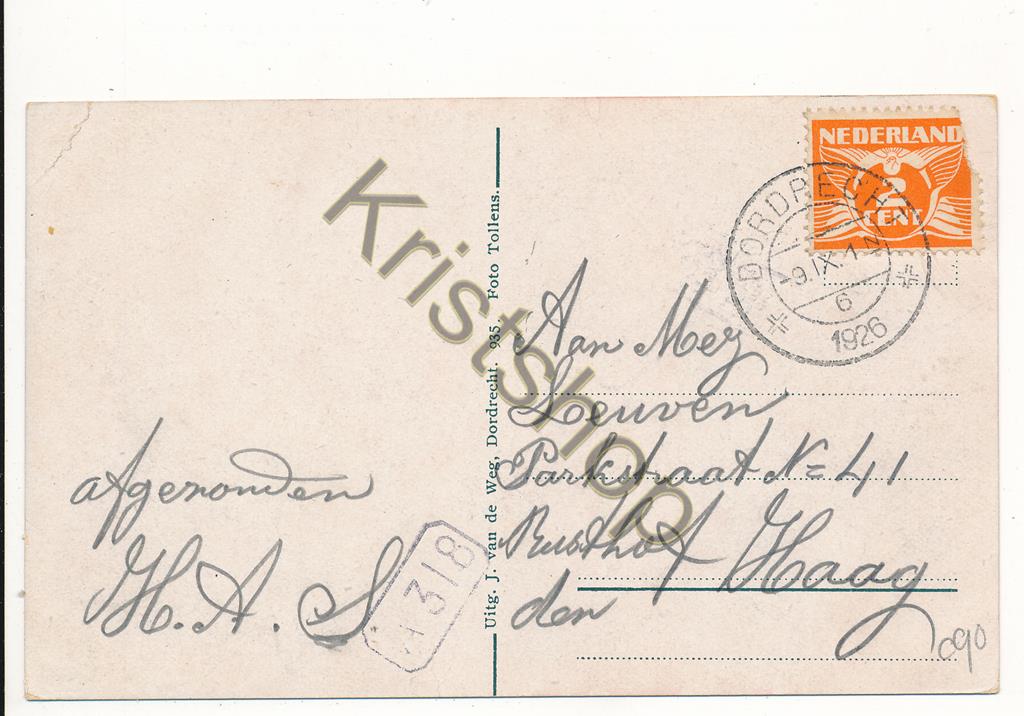 NEDERLAND
2
CENT
DORDRECHT
9.IX.1
N
6
1926
Aan Mej
Leuven
Parkstraat N= 41
Rusthof Haag
den
afgezonden
H. A. S
318
Uitg. J. van de Weg, Dordrecht. 935. Foto Tollens.
Kristshop
090